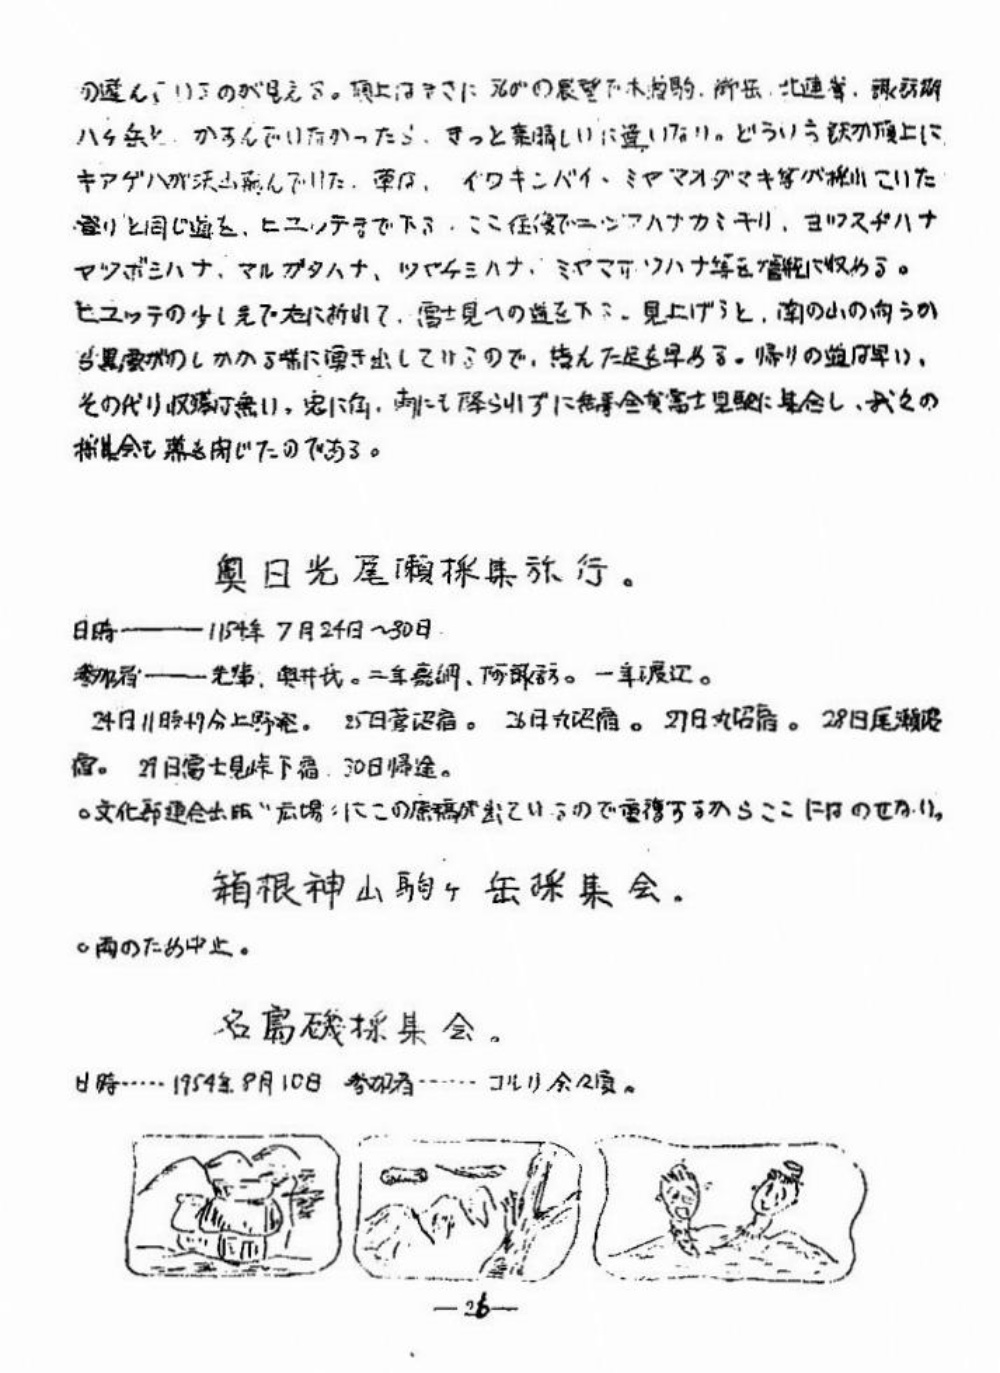 の遊んでいるのが見える。頂上はまさに360°の展望で木曽駒、御岳、北連峯、諏訪湖
八ヶ岳と、かすんでいなかったら、きっと素晴しいに違いない。どういう訳か頂上に
キアゲハが沢山飛んでいた。草は、イワキンバイ、ミヤマオダマキ等が 咲いていた
登りと同じ道を、ヒユッテまで下る。ここ 後でニンフハナカミキリ、ヨツスヂハナ
マツボシハナ、マルガタハナ、ツヤケシハナ、ミヤマホソハナ等を 瓶に収める。
ヒユッテの少し先で左に折れて、富士見への道を下る。見上げると、南の山の向うか
ら黒雲がのしかかる様に湧き出しているので、 んだ足を早める。帰りの道は早い、
その代り収獲は無い。兎に角、雨にも降られずに 全員富士見駅に集合し、我々の
採集会も幕を閉じたのである。
奥日光尾瀬採集旅行。
日時―――1954年 7月24日~30日
参加者―――先輩、奥井氏。二年嘉納、阿部 。一年渡辺。
24日11時47分上野発。 25日菅沼宿。 26日丸沼宿。 27日丸沼宿。 28日尾瀬沼
宿。 29日富士見峠下宿 30日帰途。
○文化部連合出版"広場"にこの原稿が出ているので重複するからここにはのせない。
箱根神山駒ヶ岳採集会。
○雨のため中止。
名島磯採集会。
日時……1954年8月10日 参加者……コルリ会々員。
—26—